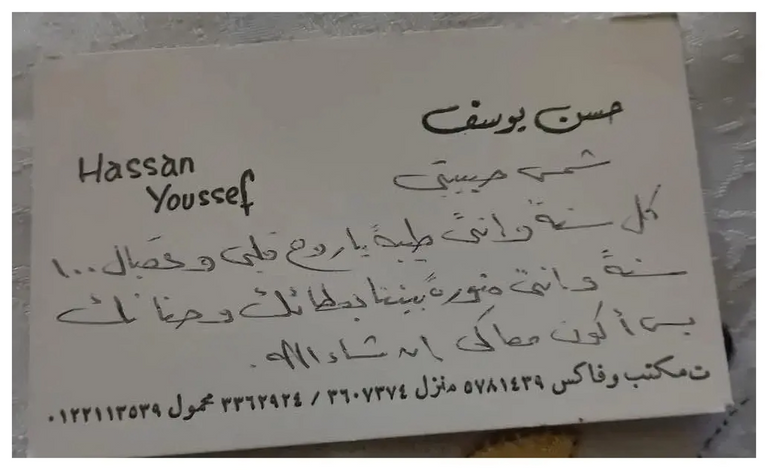 حسن يوسف
Hassan
Youssef
شمس حبيبتى
كل سنة وانتى طيبة يا روح قلبى وعقبال ١٠٠
سنة وانتى منورة بيننا بعطائك وحنانك
بس أكون معاكى إن شاء الله.
ت مكتب وفاكس ٥٧٨١٤٣٩ منزل ٣٦٠٧٣٧٤ / ٣٣٦٢٩٢٤ محمول ٠١٢٢١١٣٥٣٩